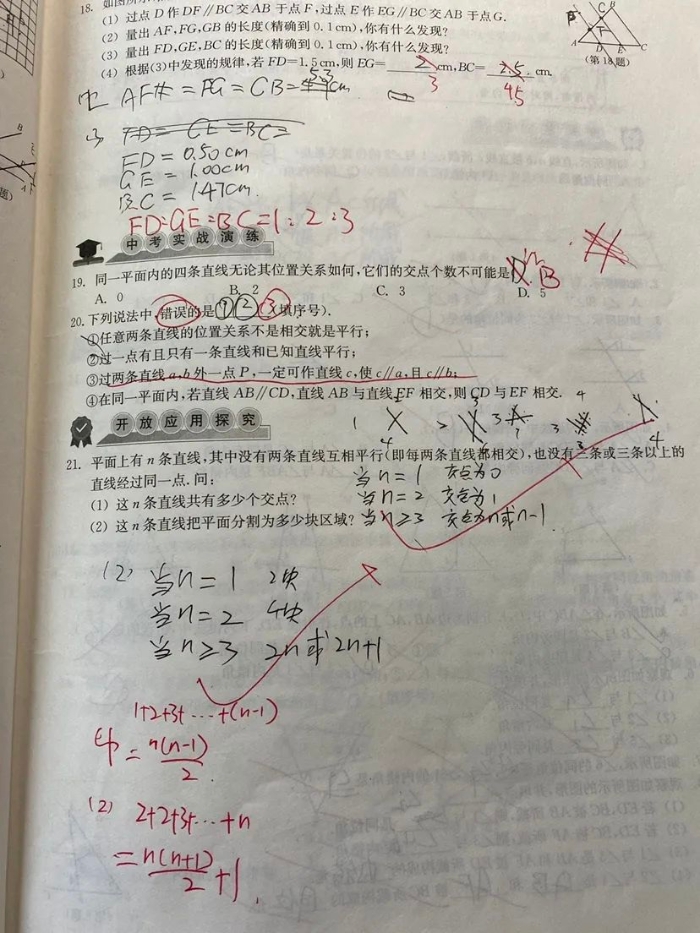 18. 如图所示
(1) 过点 D 作 DF∥BC 交 AB 于点 F,过点 E 作 EG∥BC 交 AB 于点 G.
(2) 量出 AF,FG,GB 的长度(精确到 0.1 cm),你有什么发现?
(3) 量出 FD,GE,BC 的长度(精确到 0.1 cm),你有什么发现?
(4) 根据(3)中发现的规律,若 FD=1.5 cm,则 EG= 2 cm,BC= 2.5 cm.
3 4.5
(第 18 题)
FD = 0.50 cm
GE = 1.00cm
BC = 1.47cm.
FD:GE:BC=1:2:3
中考实战演练
19. 同一平面内的四条直线无论其位置关系如何,它们的交点个数不可能是 B
A. 0 B. 2 C. 3 D. 5
20. 下列说法中,错误的是 ①②③ (填序号).
①任意两条直线的位置关系不是相交就是平行;
②过一点有且只有一条直线和已知直线平行;
③过两条直线 a,b 外一点 P,一定可作直线 c,使 c∥a,且 c∥b;
④在同一平面内,若直线 AB∥CD,直线 AB 与直线 EF 相交,则 CD 与 EF 相交.
开放应用探究
21. 平面上有 n 条直线,其中没有两条直线互相平行(即每两条直线都相交),也没有三条或三条以上的
直线经过同一点.问:
当n=1 交点为0
(1) 这 n 条直线共有多少个交点? 当n=2 交点为1
(2) 这 n 条直线把平面分割为多少块区域? 当n≥3 交点为n或n-1
(2) 当n=1 2块
当n=2 4块
当n≥3 2n或2n+1
1+2+3+…+(n-1)
= n(n-1)/2
(2) 2+2+3+…+n
= n(n+1)/2 +1